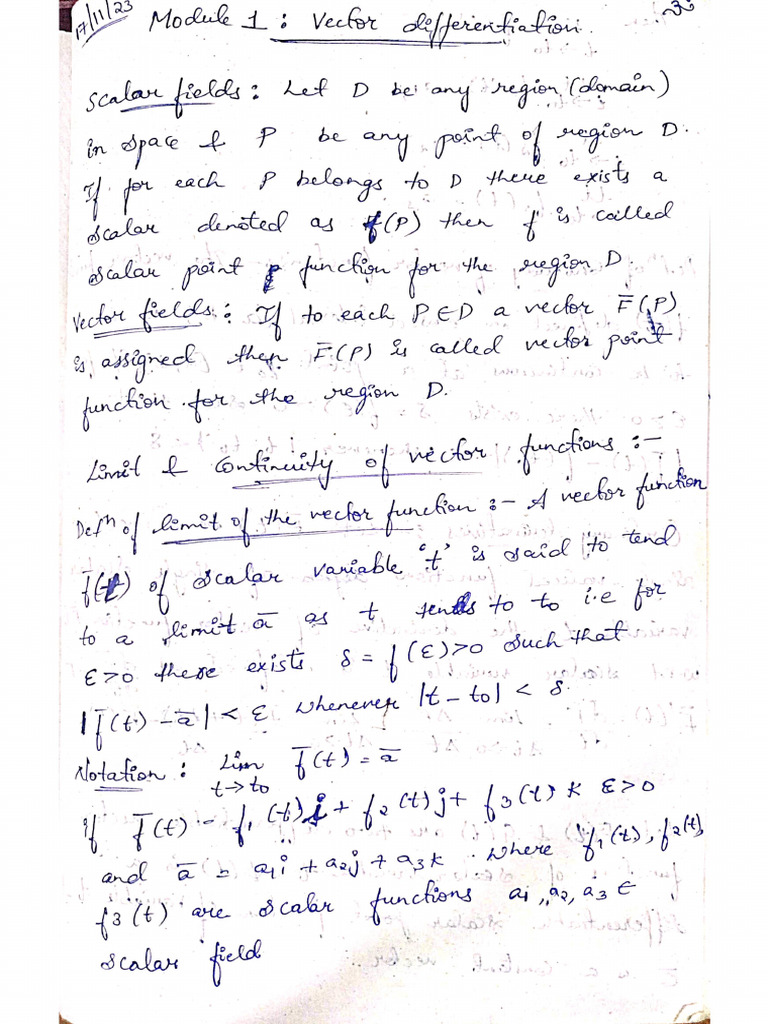 17/11/23 Module 1 : Vector differentiation
Scalar fields : Let D be any region (domain)
in space & P be any point of region D.
If for each P belongs to D there exists a
scalar denoted as f(P) then f is called
scalar point function for the region D.
Vector fields : If to each P∈D a vector F̄(P)
is assigned then F̄(P) is called vector point
function for the region D.
Limit & Continuity of vector functions :-
Defⁿ of limit of the vector function :- A vector function
f̄(t) of scalar variable 't' is said to tend
to a limit ā as t tends to to i.e for
ε>0 there exists δ = f(ε)>0 such that
|f̄(t) - ā| < ε whenever |t - to| < δ.
Notation : Lim f̄(t) = ā
t→to
if f̄(t) = f1(t)i + f2(t)j + f3(t)k ε>0
and ā = a1i + a2j + a3k where f1(t), f2(t),
f3(t) are scalar functions a1, a2, a3 ∈
scalar field